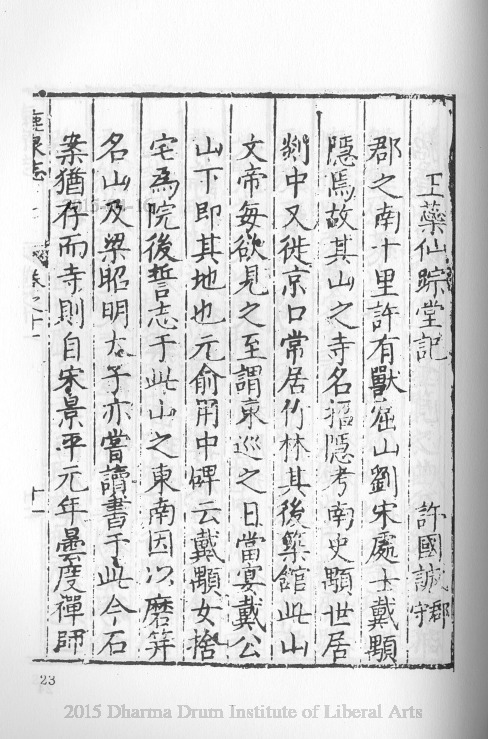 玉蘂仙踪堂記 許國誠郡守
郡之南十里許有獸窟山劉宋處士戴顒
隱焉故其山之寺名招隱考南史顒世居
剡中又徙京口常居竹林其後築館此山
文帝每欲見之至謂東巡之日當宴戴公
山下即其地也元俞用中碑云戴顒女捨
宅為院後誓志于此山之東南因以磨笄
名山及梁昭明太子亦嘗讀書于此今石
案猶存而寺則自宋景平元年曇度禪師
卷之十一 十一
23
2015 Dharma Drum Institute of Liberal Arts